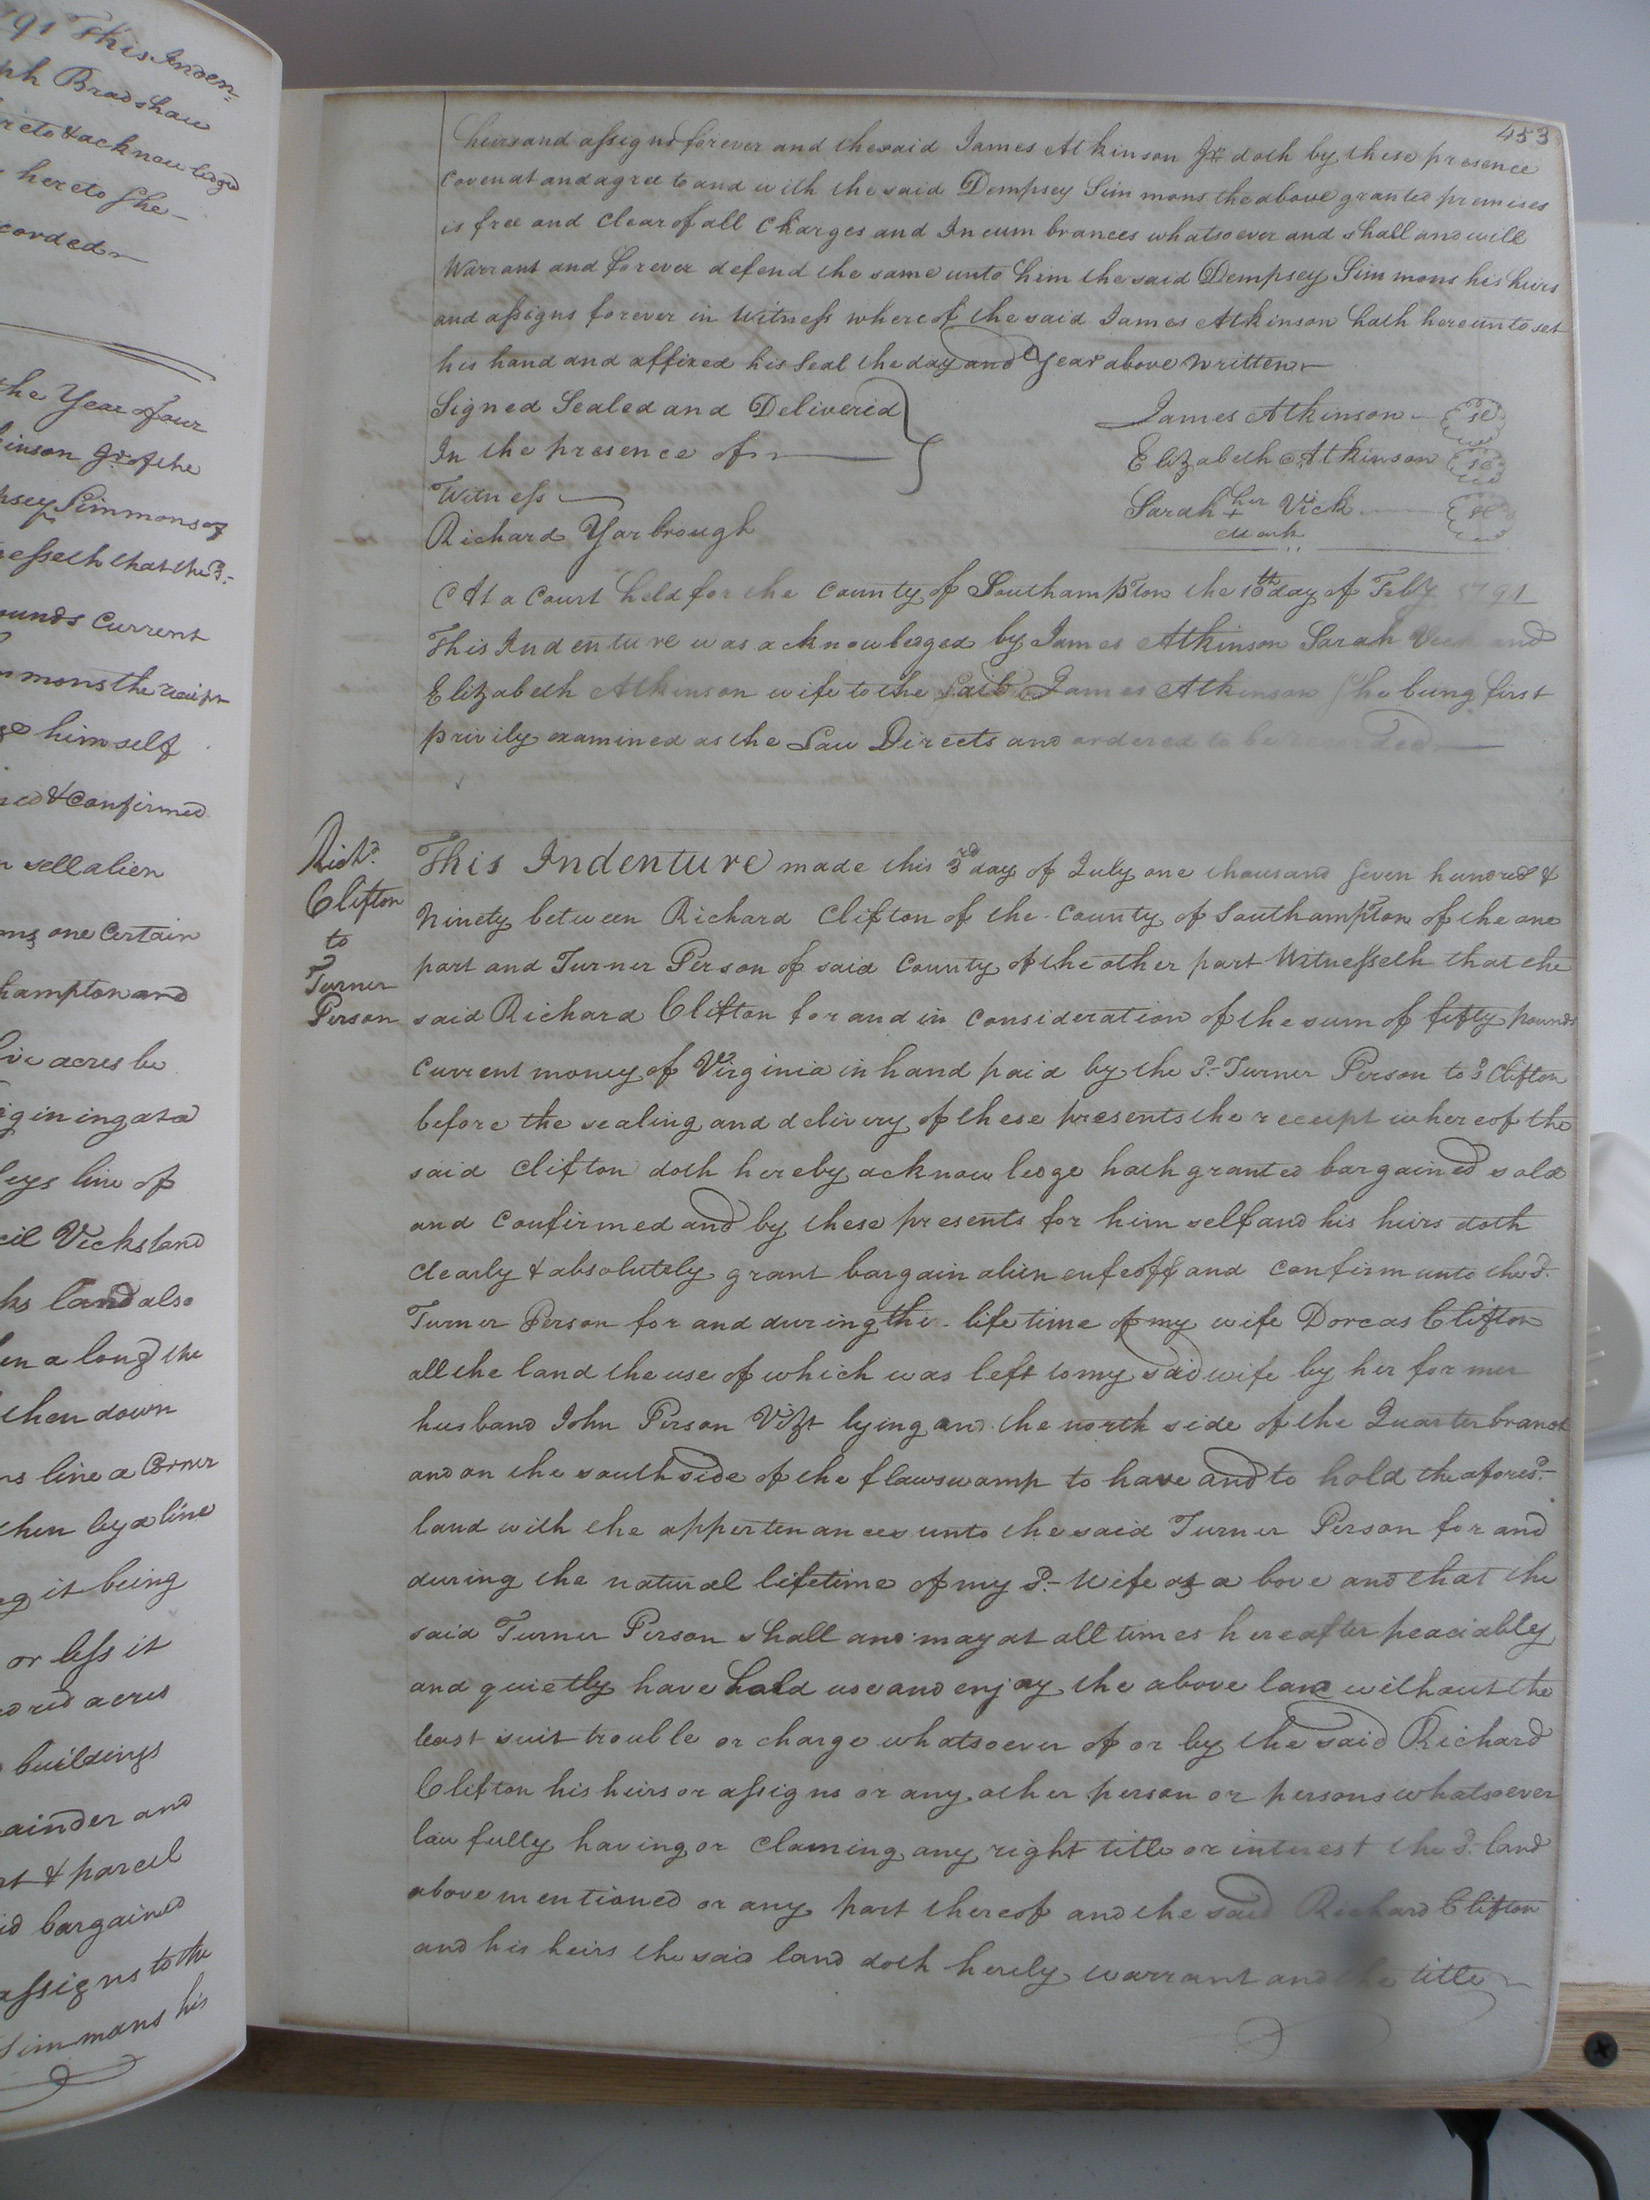 191 This Inden=
ph Bradshaw
reto & acknowledged
hereto she
corded
the Year of our
kinson Jr of the
psey Simmons of
nesseth that the sd.
ounds Current
mmons the receipt
himself
& Confirmed
sell alien
one Certain
hampton and
five acres be
gining at a
leys line of
cil Vicks land
ks land also
en a long the
then down
ns line a Corner
then by a line
it being
or less it
dred acres
buildings
ainder and
rt & parcel
id bargained
assigns to the
Simmons his
453
heirs and assigns forever and the said James Atkinson Jr doth by these presence
Covenat and agree to and with the said Dempsey Simmons the above granted premises
is free and Clear of all Charges and Incumbrances whatsoever and shall and will
Warrant and forever defend the same unto him the said Dempsey Simmons his heirs
and assigns forever in Witness whereof the said James Atkinson hath hereunto set
his hand and affixed his Seal the day and Year above written
Signed Sealed and Delivered
In the presence of
Witness
Richard Yarbrough
James Atkinson
Elizabeth Atkinson
Sarah her + mark Vick
At a Court held for the County of Southampton the 10th day of Feby 1791
This Indenture was acknowledged by James Atkinson Sarah Vick and
Elizabeth Atkinson wife to the said James Atkinson she being first
privily examined as the Law Directs and ordered to be recorded
Richd.
Clifton
to
Turner
Person
This Indenture made this 3rd day of July one thousand seven hundred &
Ninety between Richard Clifton of the County of Southampton of the one
part and Turner Person of said County of the other part Witnesseth that the
said Richard Clifton for and in Consideration of the sum of fifty pounds
Current money of Virginia in hand paid by the sd. Turner Person to sd Clifton
before the sealing and delivery of these presents the receept whereof the
said Clifton doth hereby acknowledge hath granted bargained sold
and Confirmed and by these presents for him self and his heirs doth
Clearly & absolutely grant bargain alien enfeoff and Confirm unto the sd.
Turner Person for and during the life time of my wife Dorcas Clifton
all the land the use of which was left to my said wife by her former
husband John Person Vizt lying and the north side of the Quarter branch
and on the south side of the flawswamp to have and to hold the aforesd.
land with the appertenances unto the said Turner Person for and
during the natural lifetime of my sd. Wife as a bove and that the
said Turner Person shall and may at all times hereafter peaciably
and quietly have hold use and enjoy the above land without the
least suit trouble or charge whatsoever of or by the said Richard
Clifton his heirs or assigns or any other person or persons whatsoever
lawfully having or Claming any right title or interest the sd. land
above mentioned or any part thereof and the said Richard Clifton
and his heirs the said land doth hereby warrant and the title